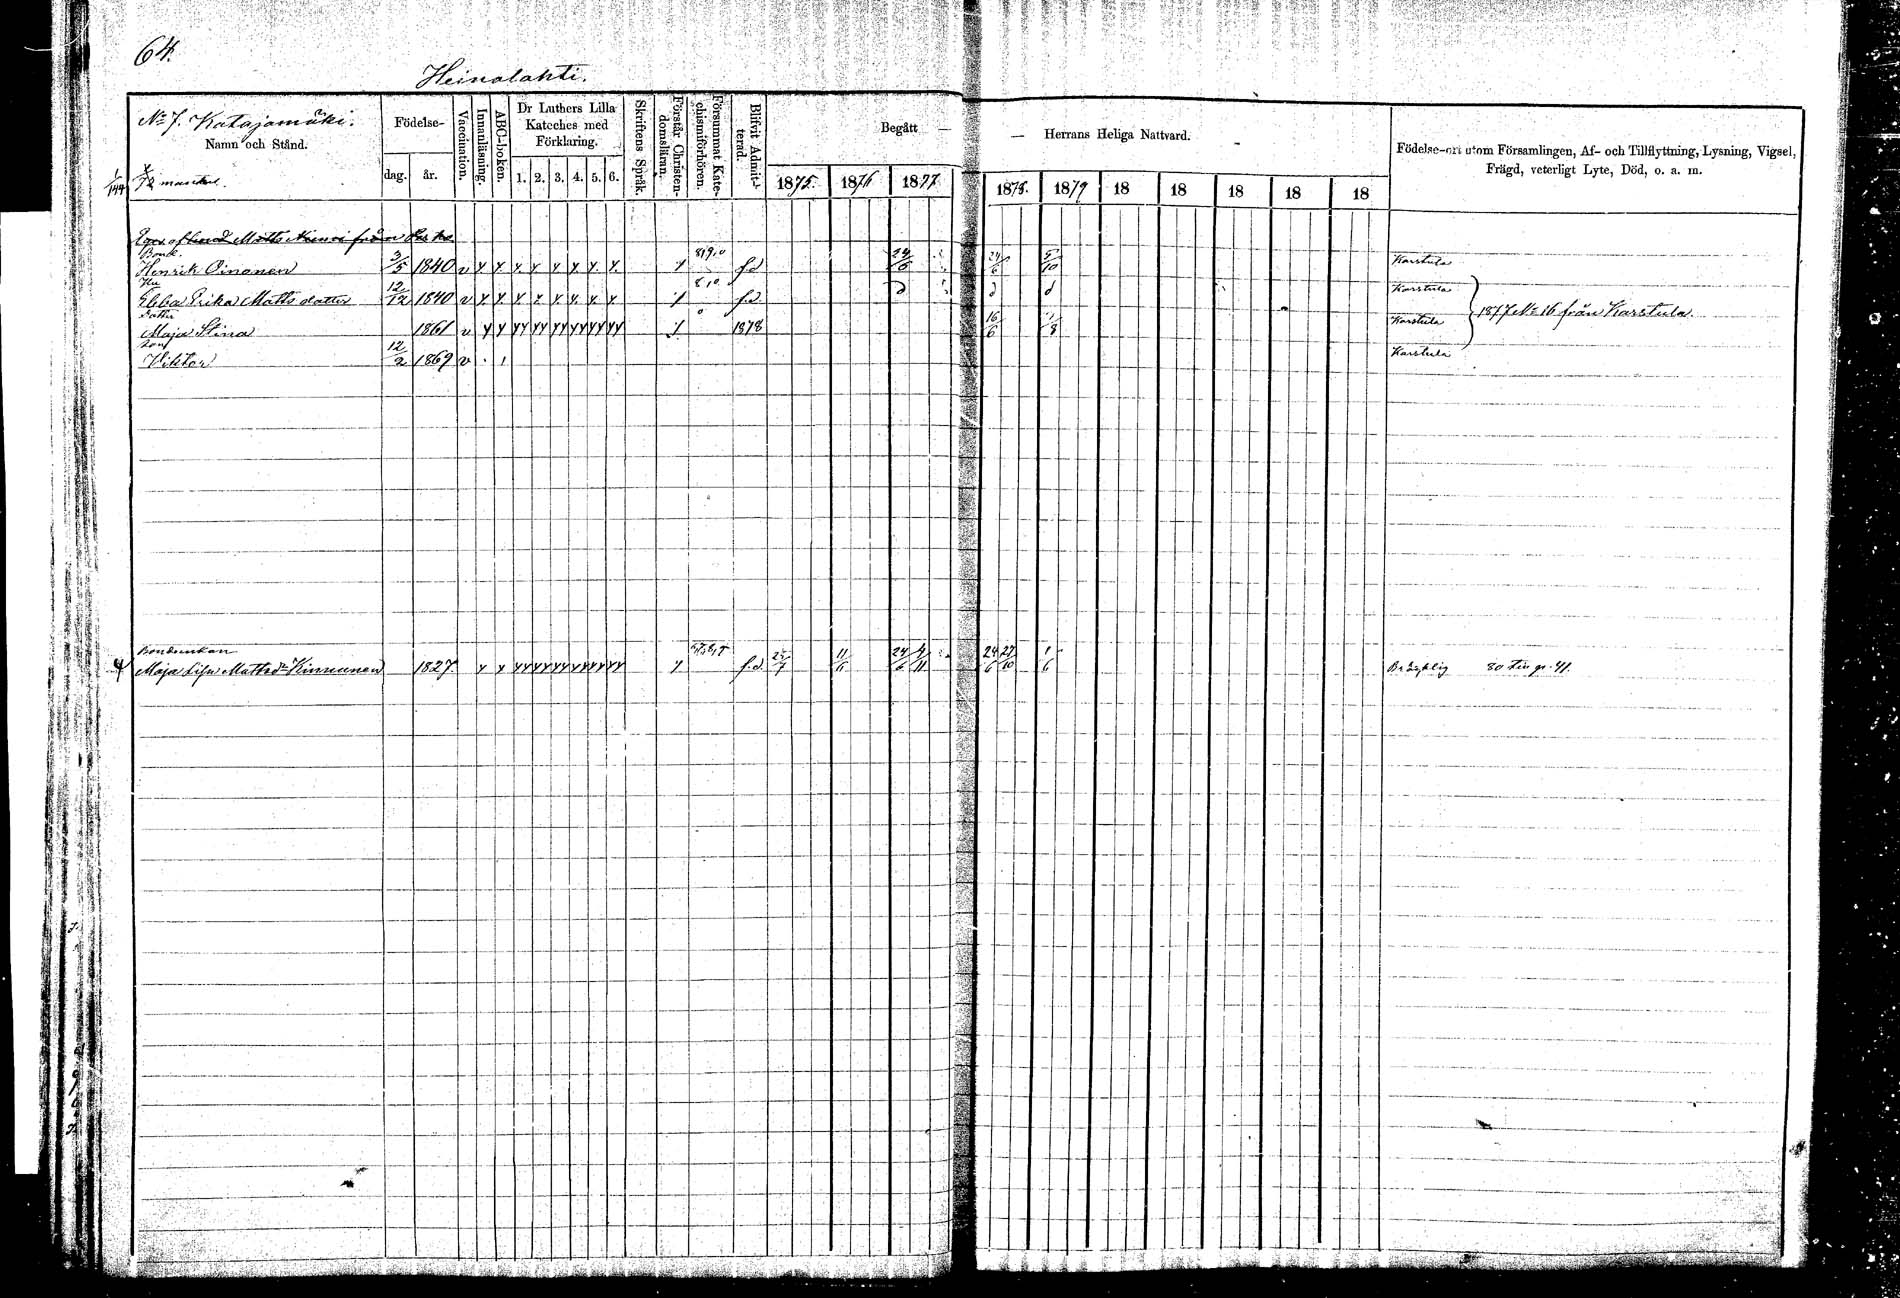 64.
Heinolahti.
No 7. Katajamäki.
Namn och Stånd.
Födelse-
dag.
år.
Vaccination.
Innanläsning.
ABC-boken.
Dr Luthers Lilla
Kateches med
Förklaring.
1. 2. 3. 4. 5. 6.
Skriftens Språk.
Förstår Christen-
domsläran.
Försummat Kate-
chismiförhören.
Blifvit Admit-
terad.
Begått —
— Herrans Heliga Nattvard.
1875. 1876 1877 1878. 1879 18 18 18 18 18
Födelse-ort utom Församlingen, Af- och Tillflyttning, Lysning, Vigsel,
Frägd, veterligt Lyte, Död, o. a. m.
1/144 mantal.
Matts från
Bond.
Henrik Oinonen 3/5 1840 v f.d 24/6 24/6 5/10 Karstula
Hu
Ebba Erika Matts datter 12/12 1840 v f.d. d d d Karstula
Datter
Maja Stina 1861 v 1878 16/6 1/8 Karstula
1877 No 16 från Karstula.
Son
Viktor 12/2 1869 v Karstula
Bondenkan
Maja Lisa Mattsdr Kinnunen 1827. f.d. 25/7 11/6 24/6 4/11 24/6 27/10 1/6 Bräcklig